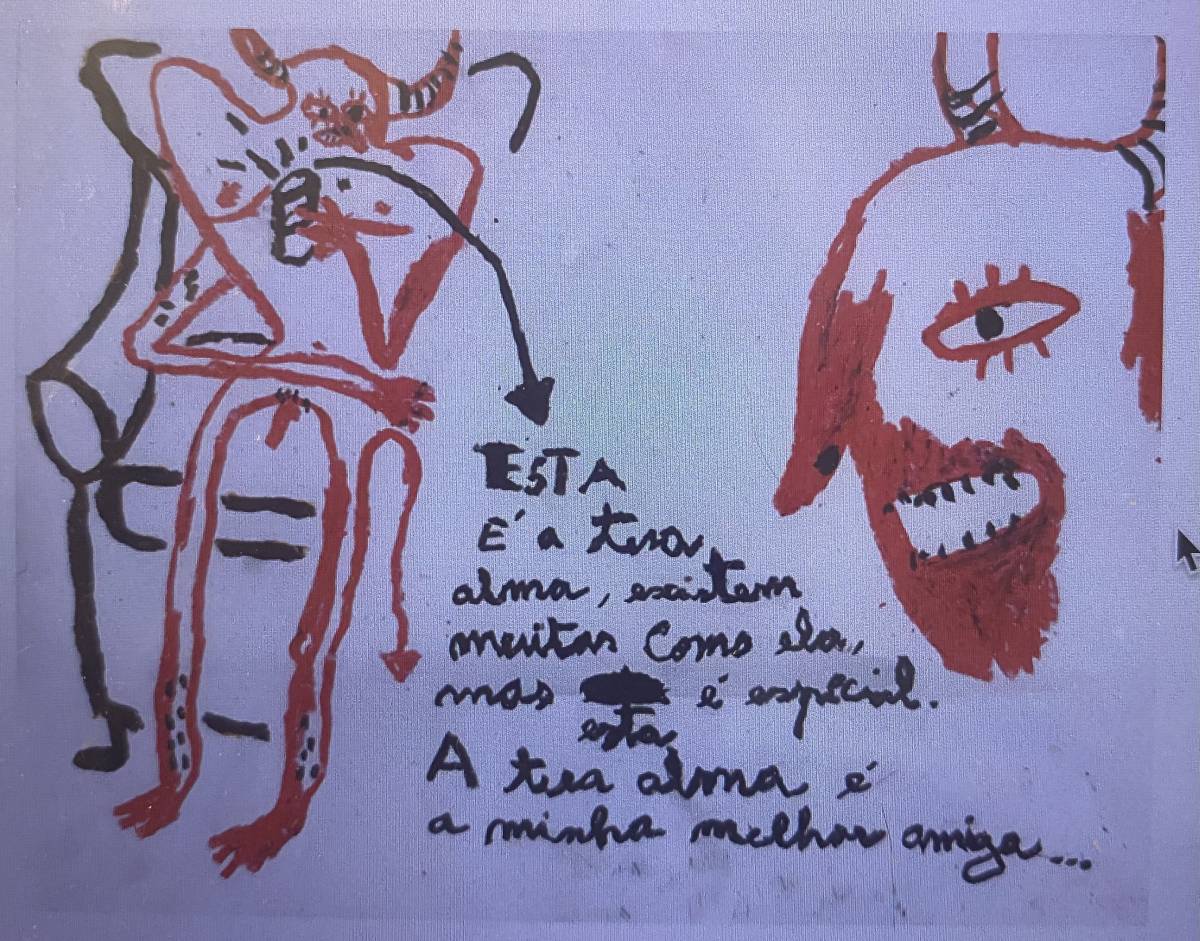 ESTA
É a tua
alma, existem
muitas como ela,
mas é especial.
esta
A tua alma é
a minha melhor amiga...